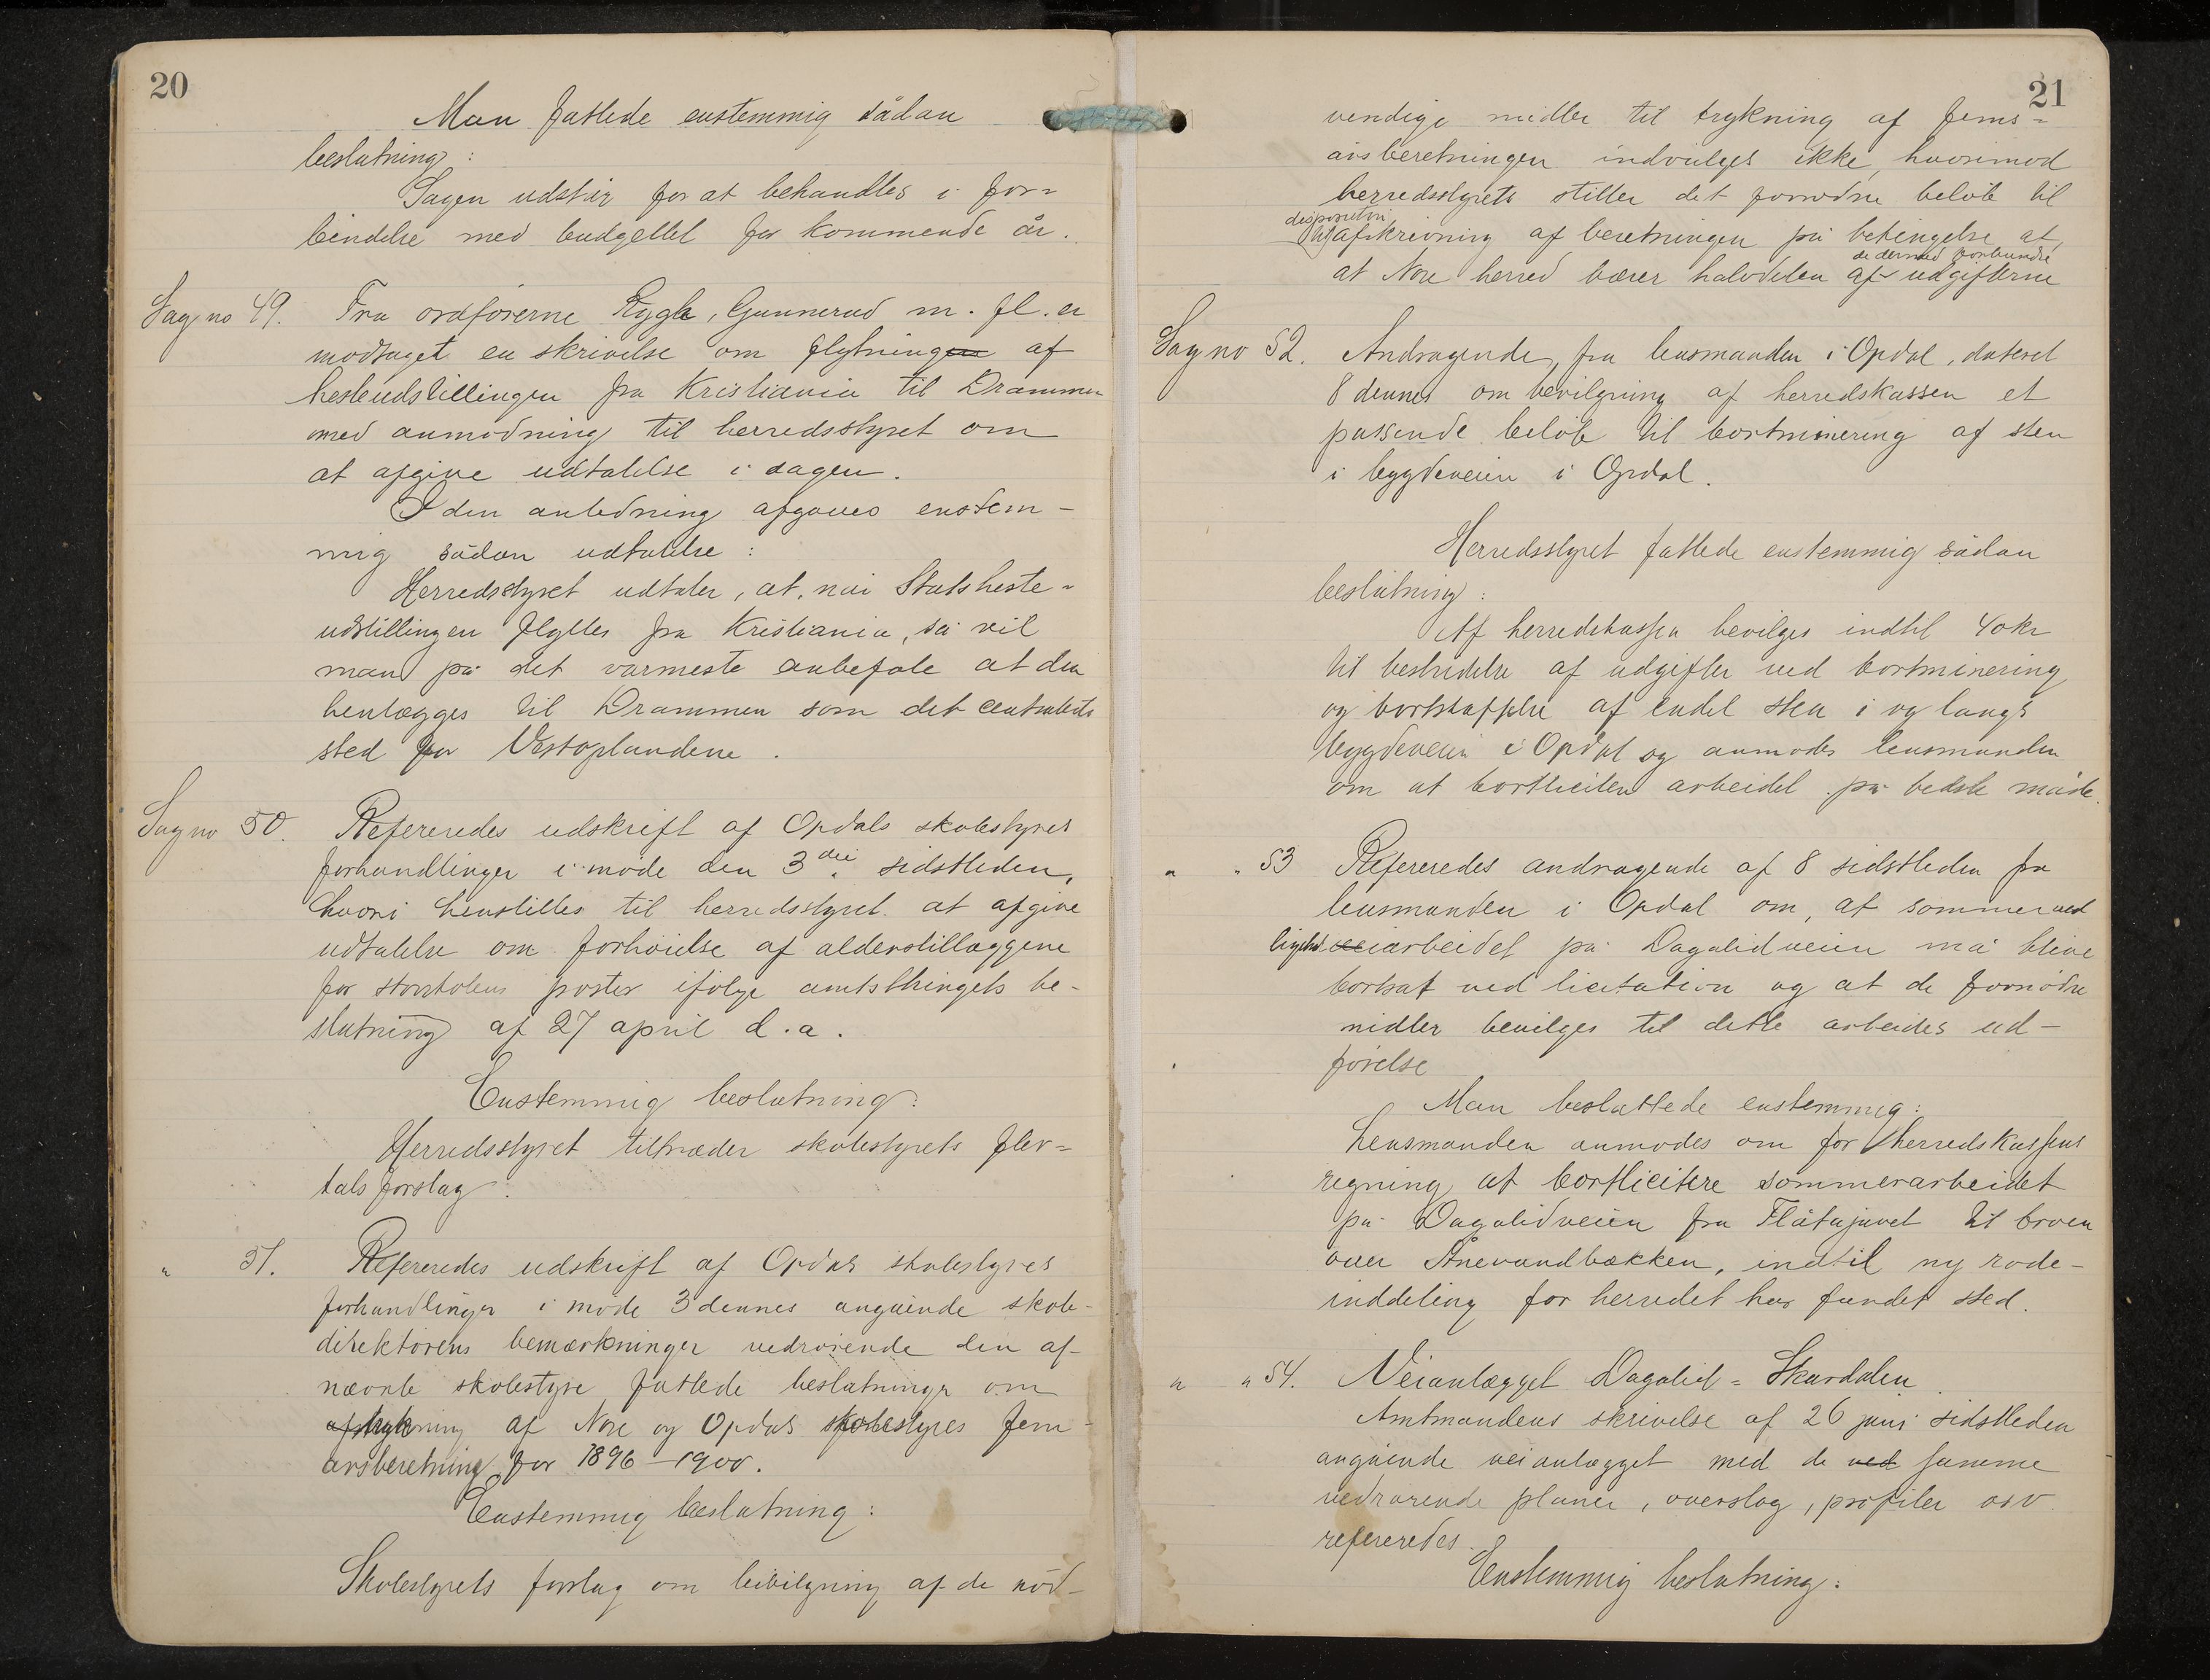 20
Man fattede enstemmig sådan
beslutning:
Sagen udstår for at behandles i for=
bindelse med budgettet for kommende år.
Sag no 49. Fra ordførerne Rygh, Gunnerud m. fl. er
modtaget en skrivelse om flytningen af
hesteudstillingen fra Kristiania til Drammen
med anmodning til herredsstyret om
at afgive udtalelse i sagen.
I den anledning afgaves enstem-
mig sådan udtalelse:
Herredsstyret udtaler, at, når Statsheste-
udstillingen flyttes fra Kristiania, så vil
man på det varmeste anbefale at den
henlægges til Drammen som det centraleste
sted for Vestoplandene.
Sag no 50. Refereredes udskrift af Opdals skolestyres
forhandlinger i møde den 3die sidstleden,
hvori henstilles til herredsstyret at afgive
udtalelse om forhøielse af alderstillæggene
for storskolens poster ifølge amtsthingets be-
slutning af 27 april d. a.
Enstemmig beslutning:
Herredsstyret tiltræder skolestyrets fler=
talsforslag.
" 51. Refereredes udskrift af Opdals skolestyres
forhandlinger i møde 3 dennes angående skole-
direktørens bemærkninger vedrørende den af
nævnte skolestyre fattede beslutninger om
aftrykning af Nore og Opdals skolestyres fem-
årsberetning for 1896–1900.
Enstemmig beslutning:
Skolestyrets forslag om bevilgning af de nød-
21
vendige midler til trykning af fems=
årsberetningen indvilges ikke, hvorimod
herredsstyrets stiller det fornødne beløb til
disposition
til afskrivning af beretningen på betingelse at,
de dermed forbundne
at Nore herred bærer halvdelen af udgifterne
Sag no 52. Andragende, fra lensmanden i Opdal, dateret
8 dennes om bevilgning af herredskassen et
passende beløb til bortminering af sten
i bygdeveien i Opdal.
Herredsstyret fattede enstemmig sådan
beslutning:
Af herredskassen bevilges indtil 40 kr
til bestridelse af udgifter ved bortminering
og bortskaffelse af endel sten i og langs
bygdeveien i Opdal og anmodes lensmanden
om at bortlicitere arbeidet på bedste måde.
" " 53 Refereredes andragende af 8 sidstleden fra
lensmanden i Opdal om, at sommerved
ligehol. veiarbeidet på Dagalidveien må blive
bortsat ved licitation og at de fornødne
midler bevilges til dette arbeides ud-
førelse
Man besluttede enstemmig:
Lensmanden anmodes om for herredskassens
regning at bortlicitere sommerarbeidet
på Dagalidveien fra Flåtajuvet til broen
over Ånevandbækken, indtil ny rode-
inddeling for herredet har fundet sted.
" " 54. Veianlægget Dagalid = Skurdalen.
Amtmandens skrivelse af 26 juni sidstleden
angående veianlægget med de ved samme
vedrørende planer, overslag, profiler osv
refereredes.
Enstemmig beslutning: